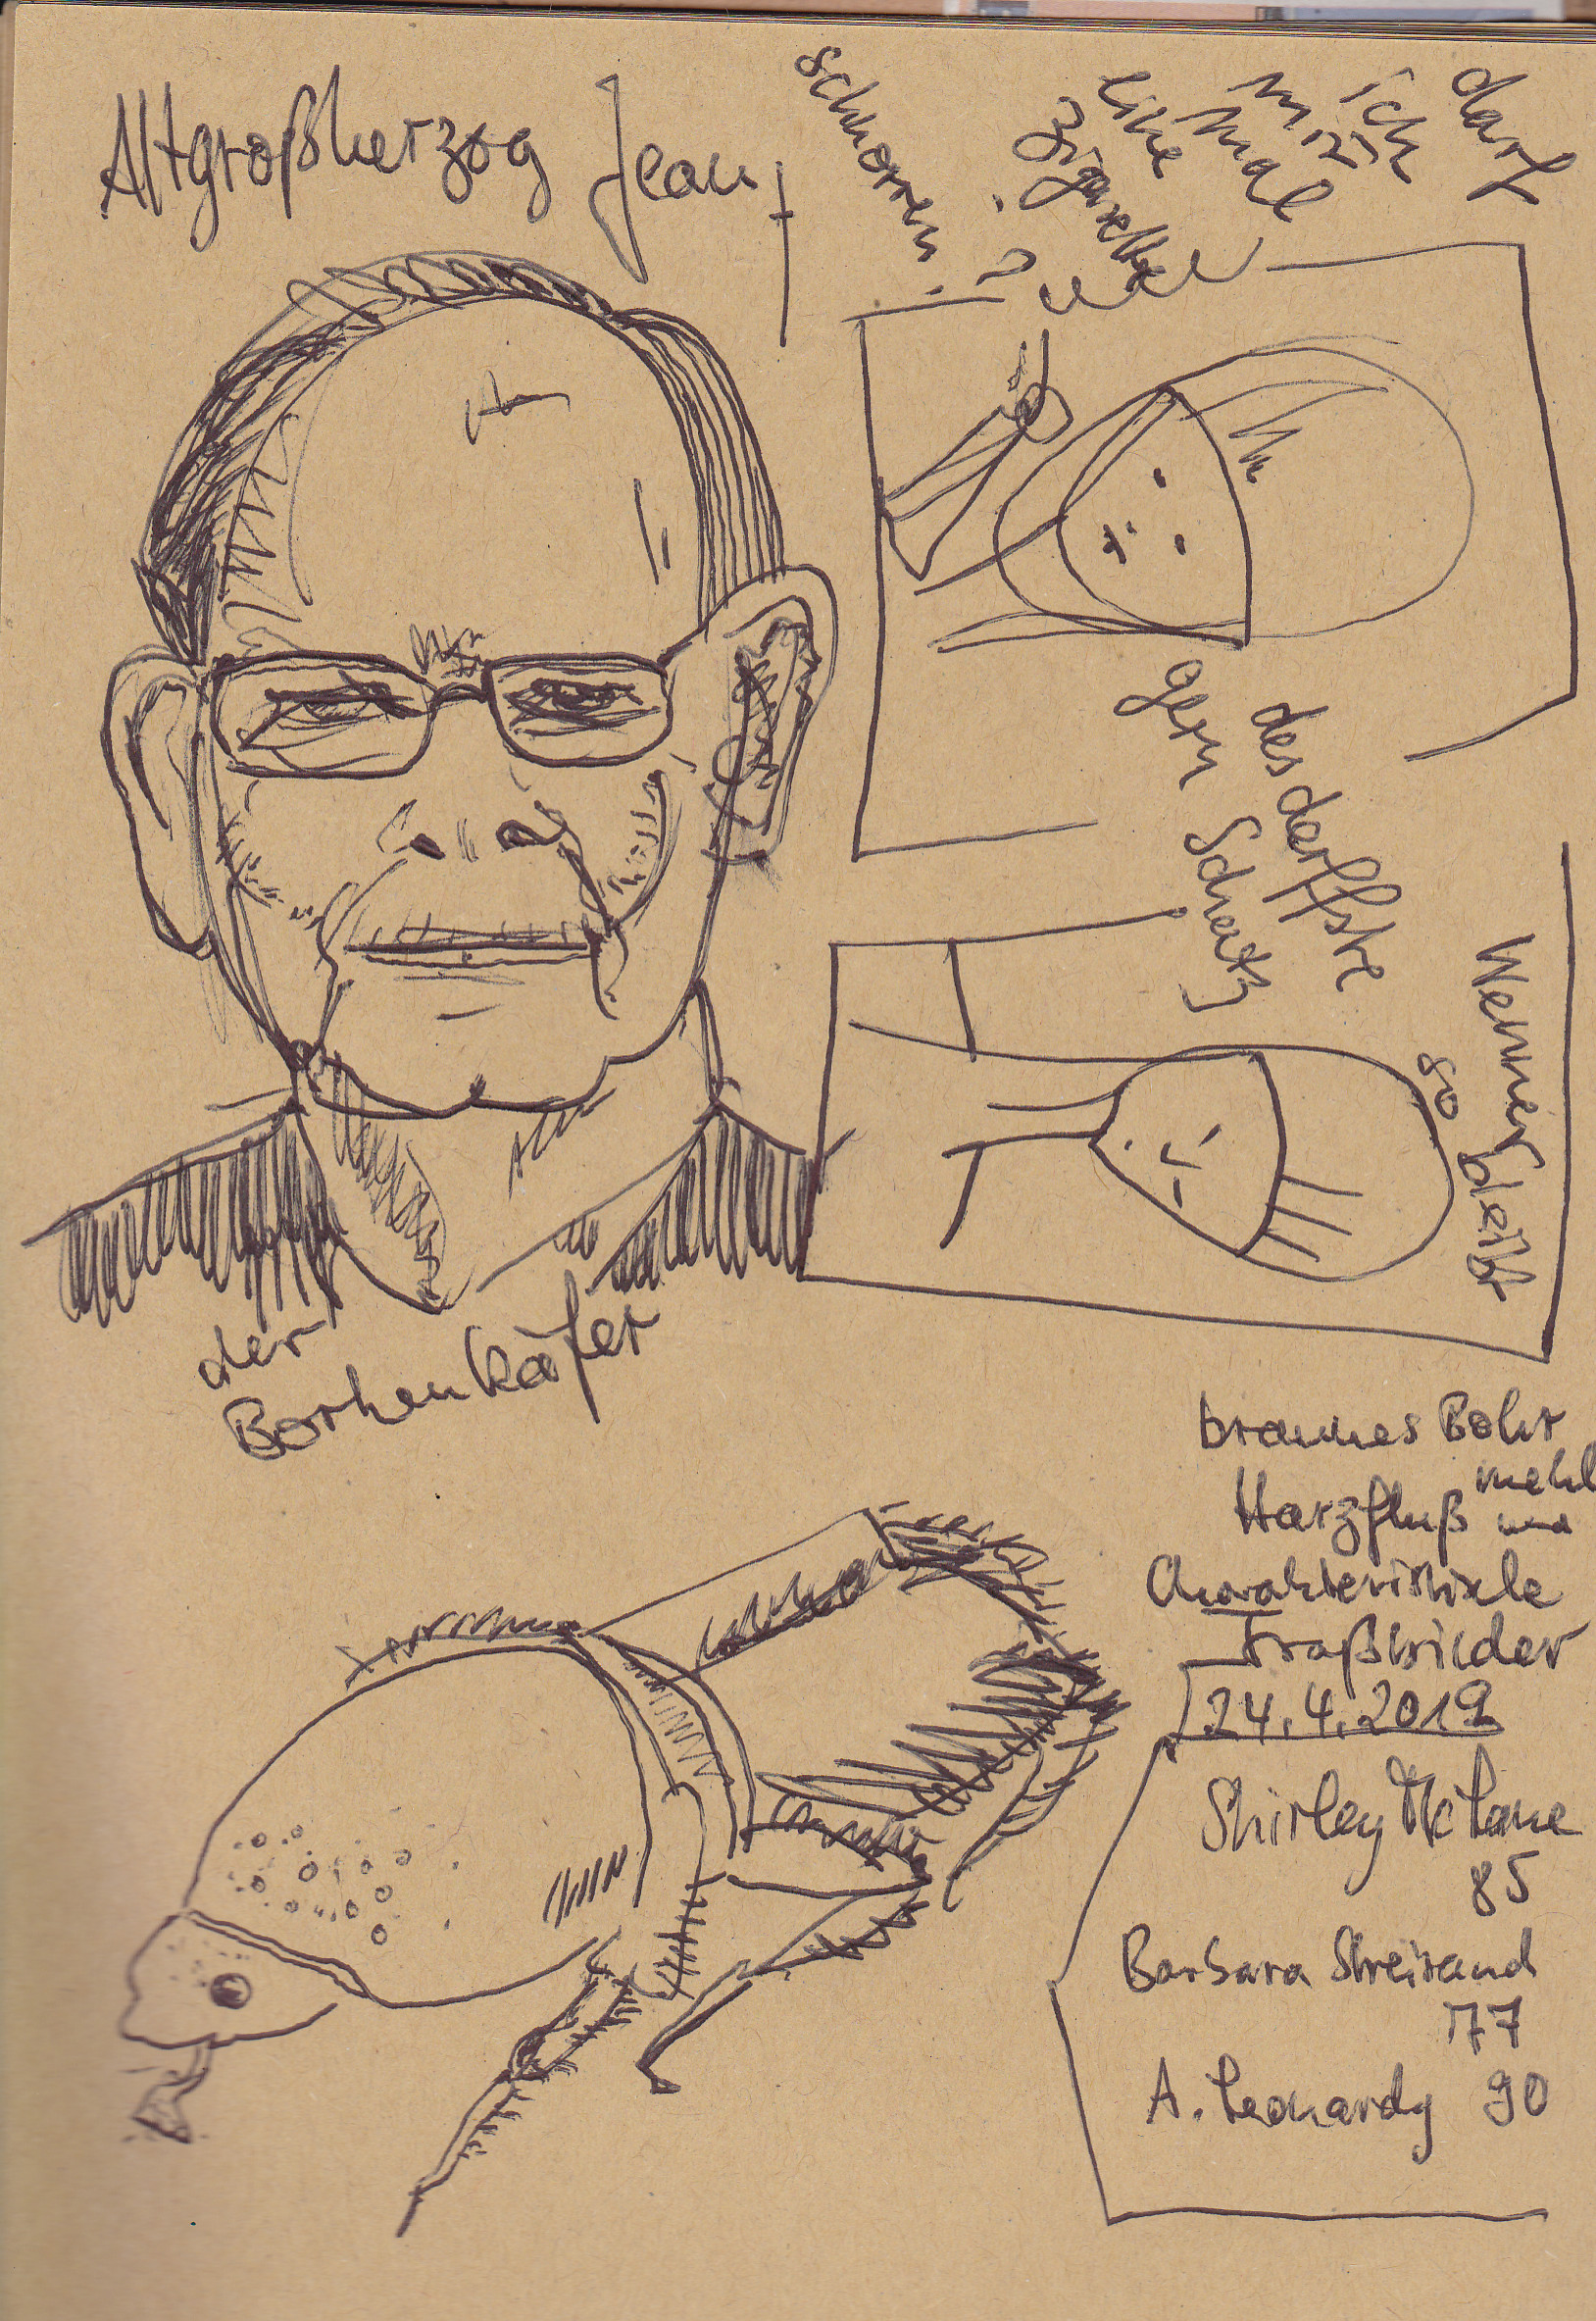 Altgroßherzog Jean †
darf
ich
mir
mal
eine
Zigarette
schnorren
?
des derffste
gern Schatz
Wenner
so bleibt
der
Borkenkäfer
braunes Bohr
mehl
Harzfluß und
Charakteristische
Fraßbilder
24.4.2019
Shirley McLane
85
Barbara Streisand
77
A. Leonardy 90